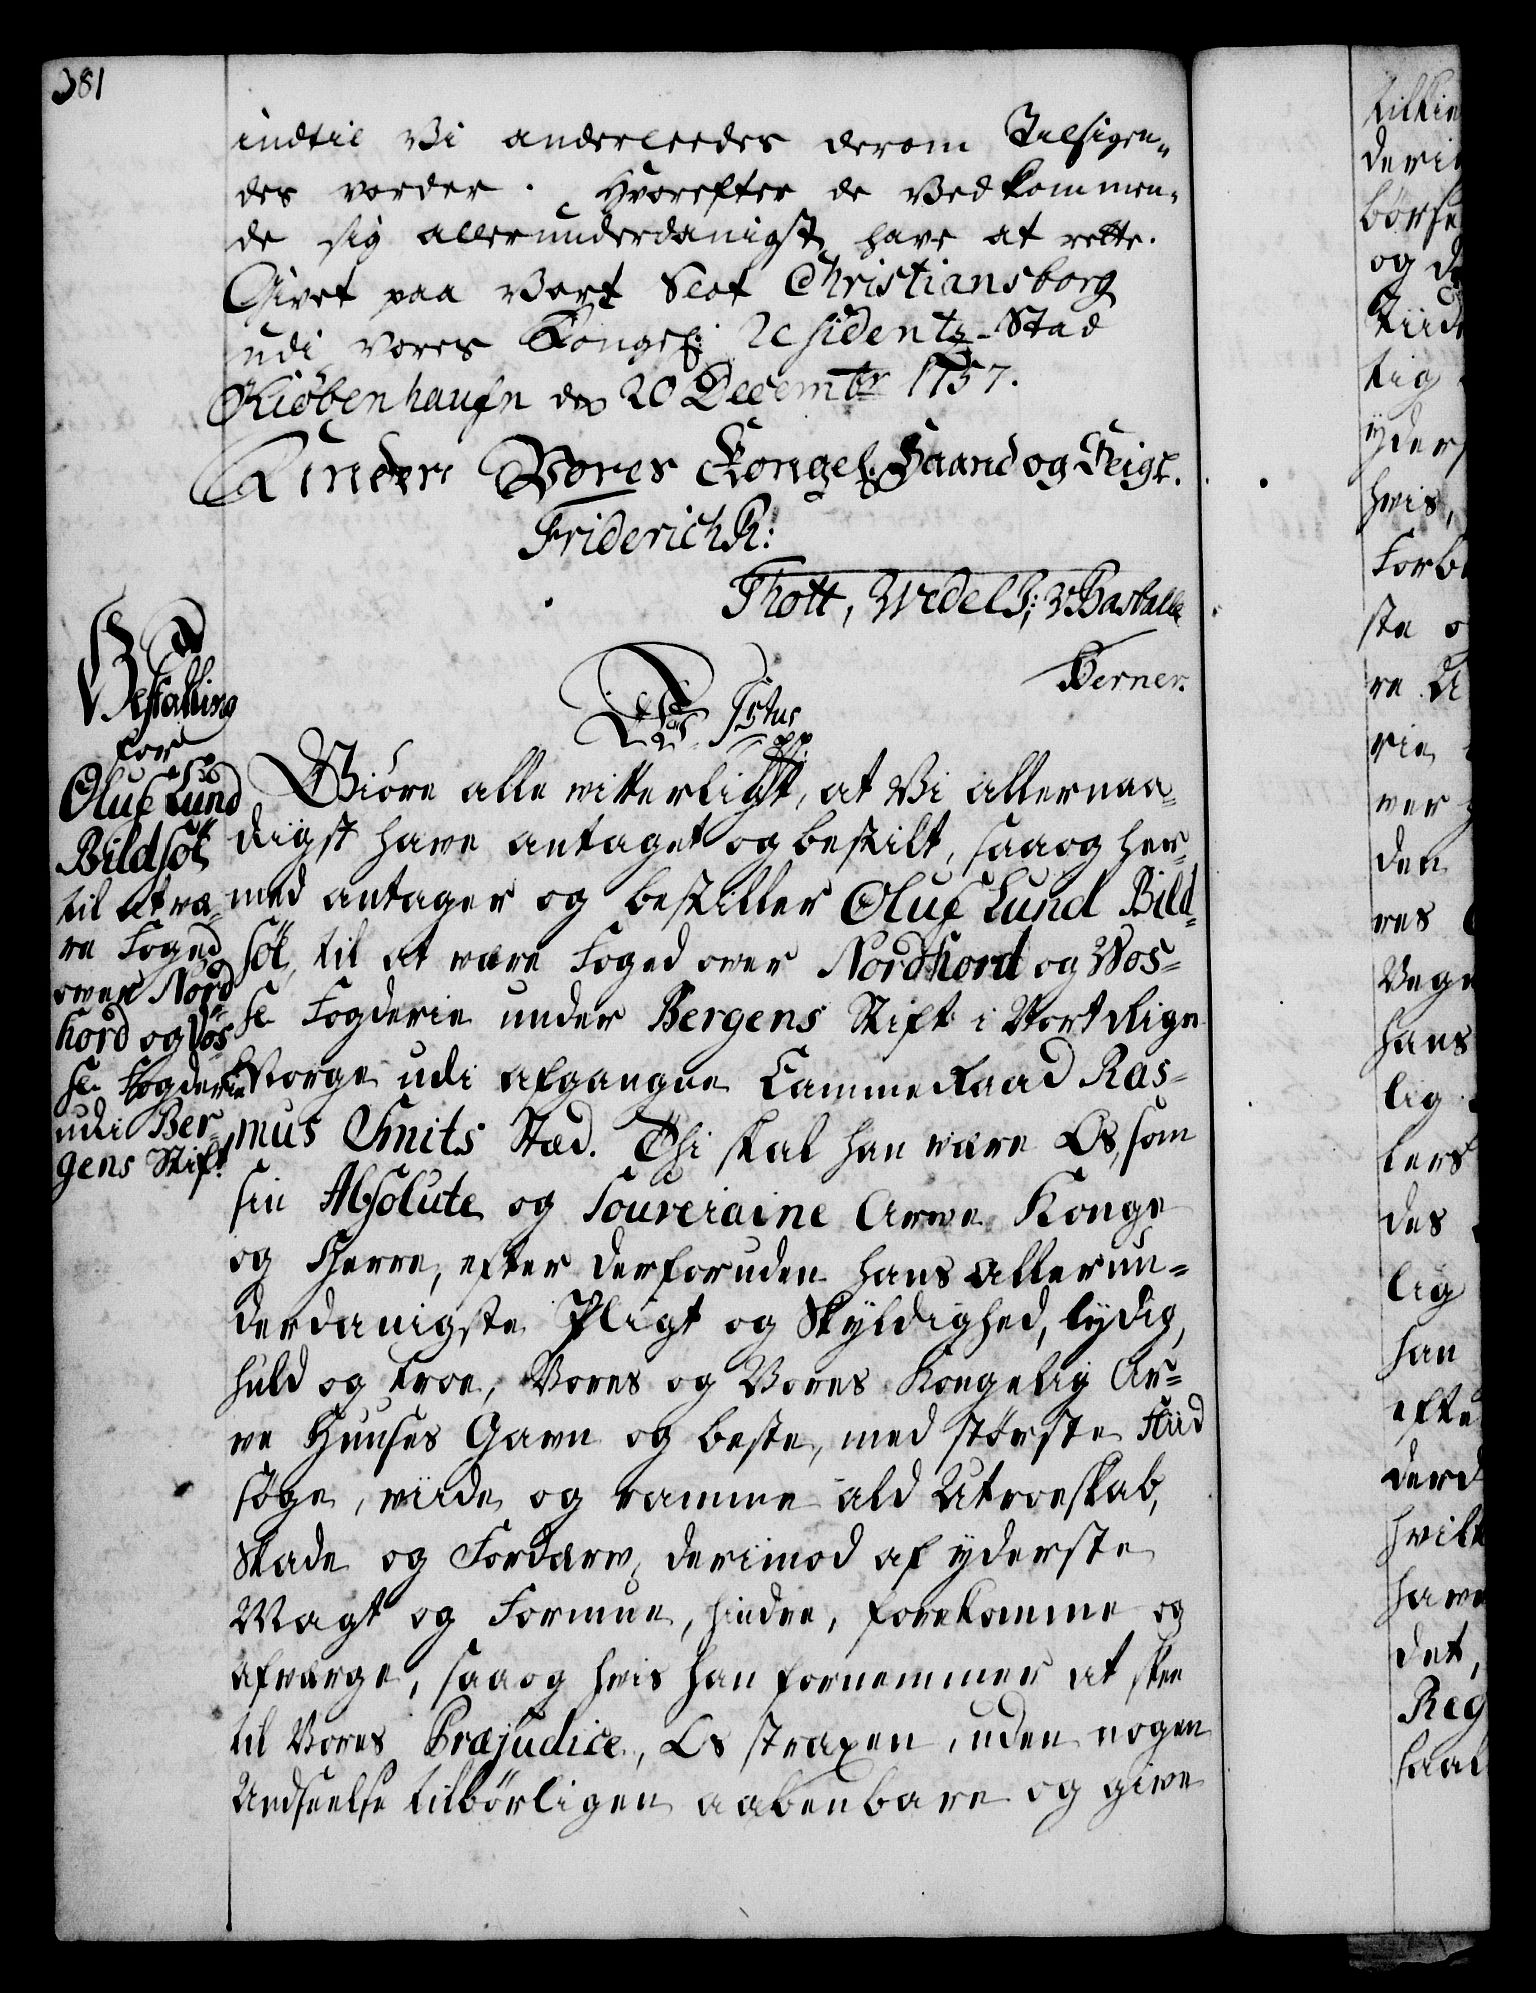 381
indtil Vi anderleedes derom Tilsigen-
des vorder. Hvorefter de Vedkommen-
de sig allerunderdanigst have at rette.
Givet paa Vort Slot Christiansborg
udi Vores Kongel: Residentz-Stad
Kiøbenhaufn den 20 Decembr 1757.
Under Vores Kongel: Haand og Seigl.
Friderich R:
Thott, Wedel J:, VBarhalle
Berner.
Bestalling
for
Oluf Lund
Bildsøt
til at væ-
re Foged
over Nord
hord og Vos-
se Fogderie
udi Ber-
gens Stift.
F 5tus
Giøre alle witterligt, at Vi allernaa-
digst have antaget og bestilt, saa og her-
med antager og bestiller Oluf Lund Bild-
søt, til at være Foged over Nordhord og Wos-
se Fogderie under Bergens Stift i Vort Rige
Norge udi afgangne Cammer Raad Ras-
mus Smits Stæd. Thi skal han være Os, som
sin Absolute og Souveraine Arve Konge
og Herre, efter derforuden hans allerun-
derdanigste Pligt og Skyldighed, lydig,
huld og troe, Vores og Vores Kongelig Ar-
ve Huuses Gavn og beste, med største Fliid
søge, viide og ramme ald Utroeskab,
Skade og Fordærv, derimod af yderste
Magt og Formue, hindre, forekomme og
afværge, saa og hvis han fornemmer at skee
til Vores Præjudice, Os straxen, uden nogen
Undseelse tilbørligen aabenbare og give